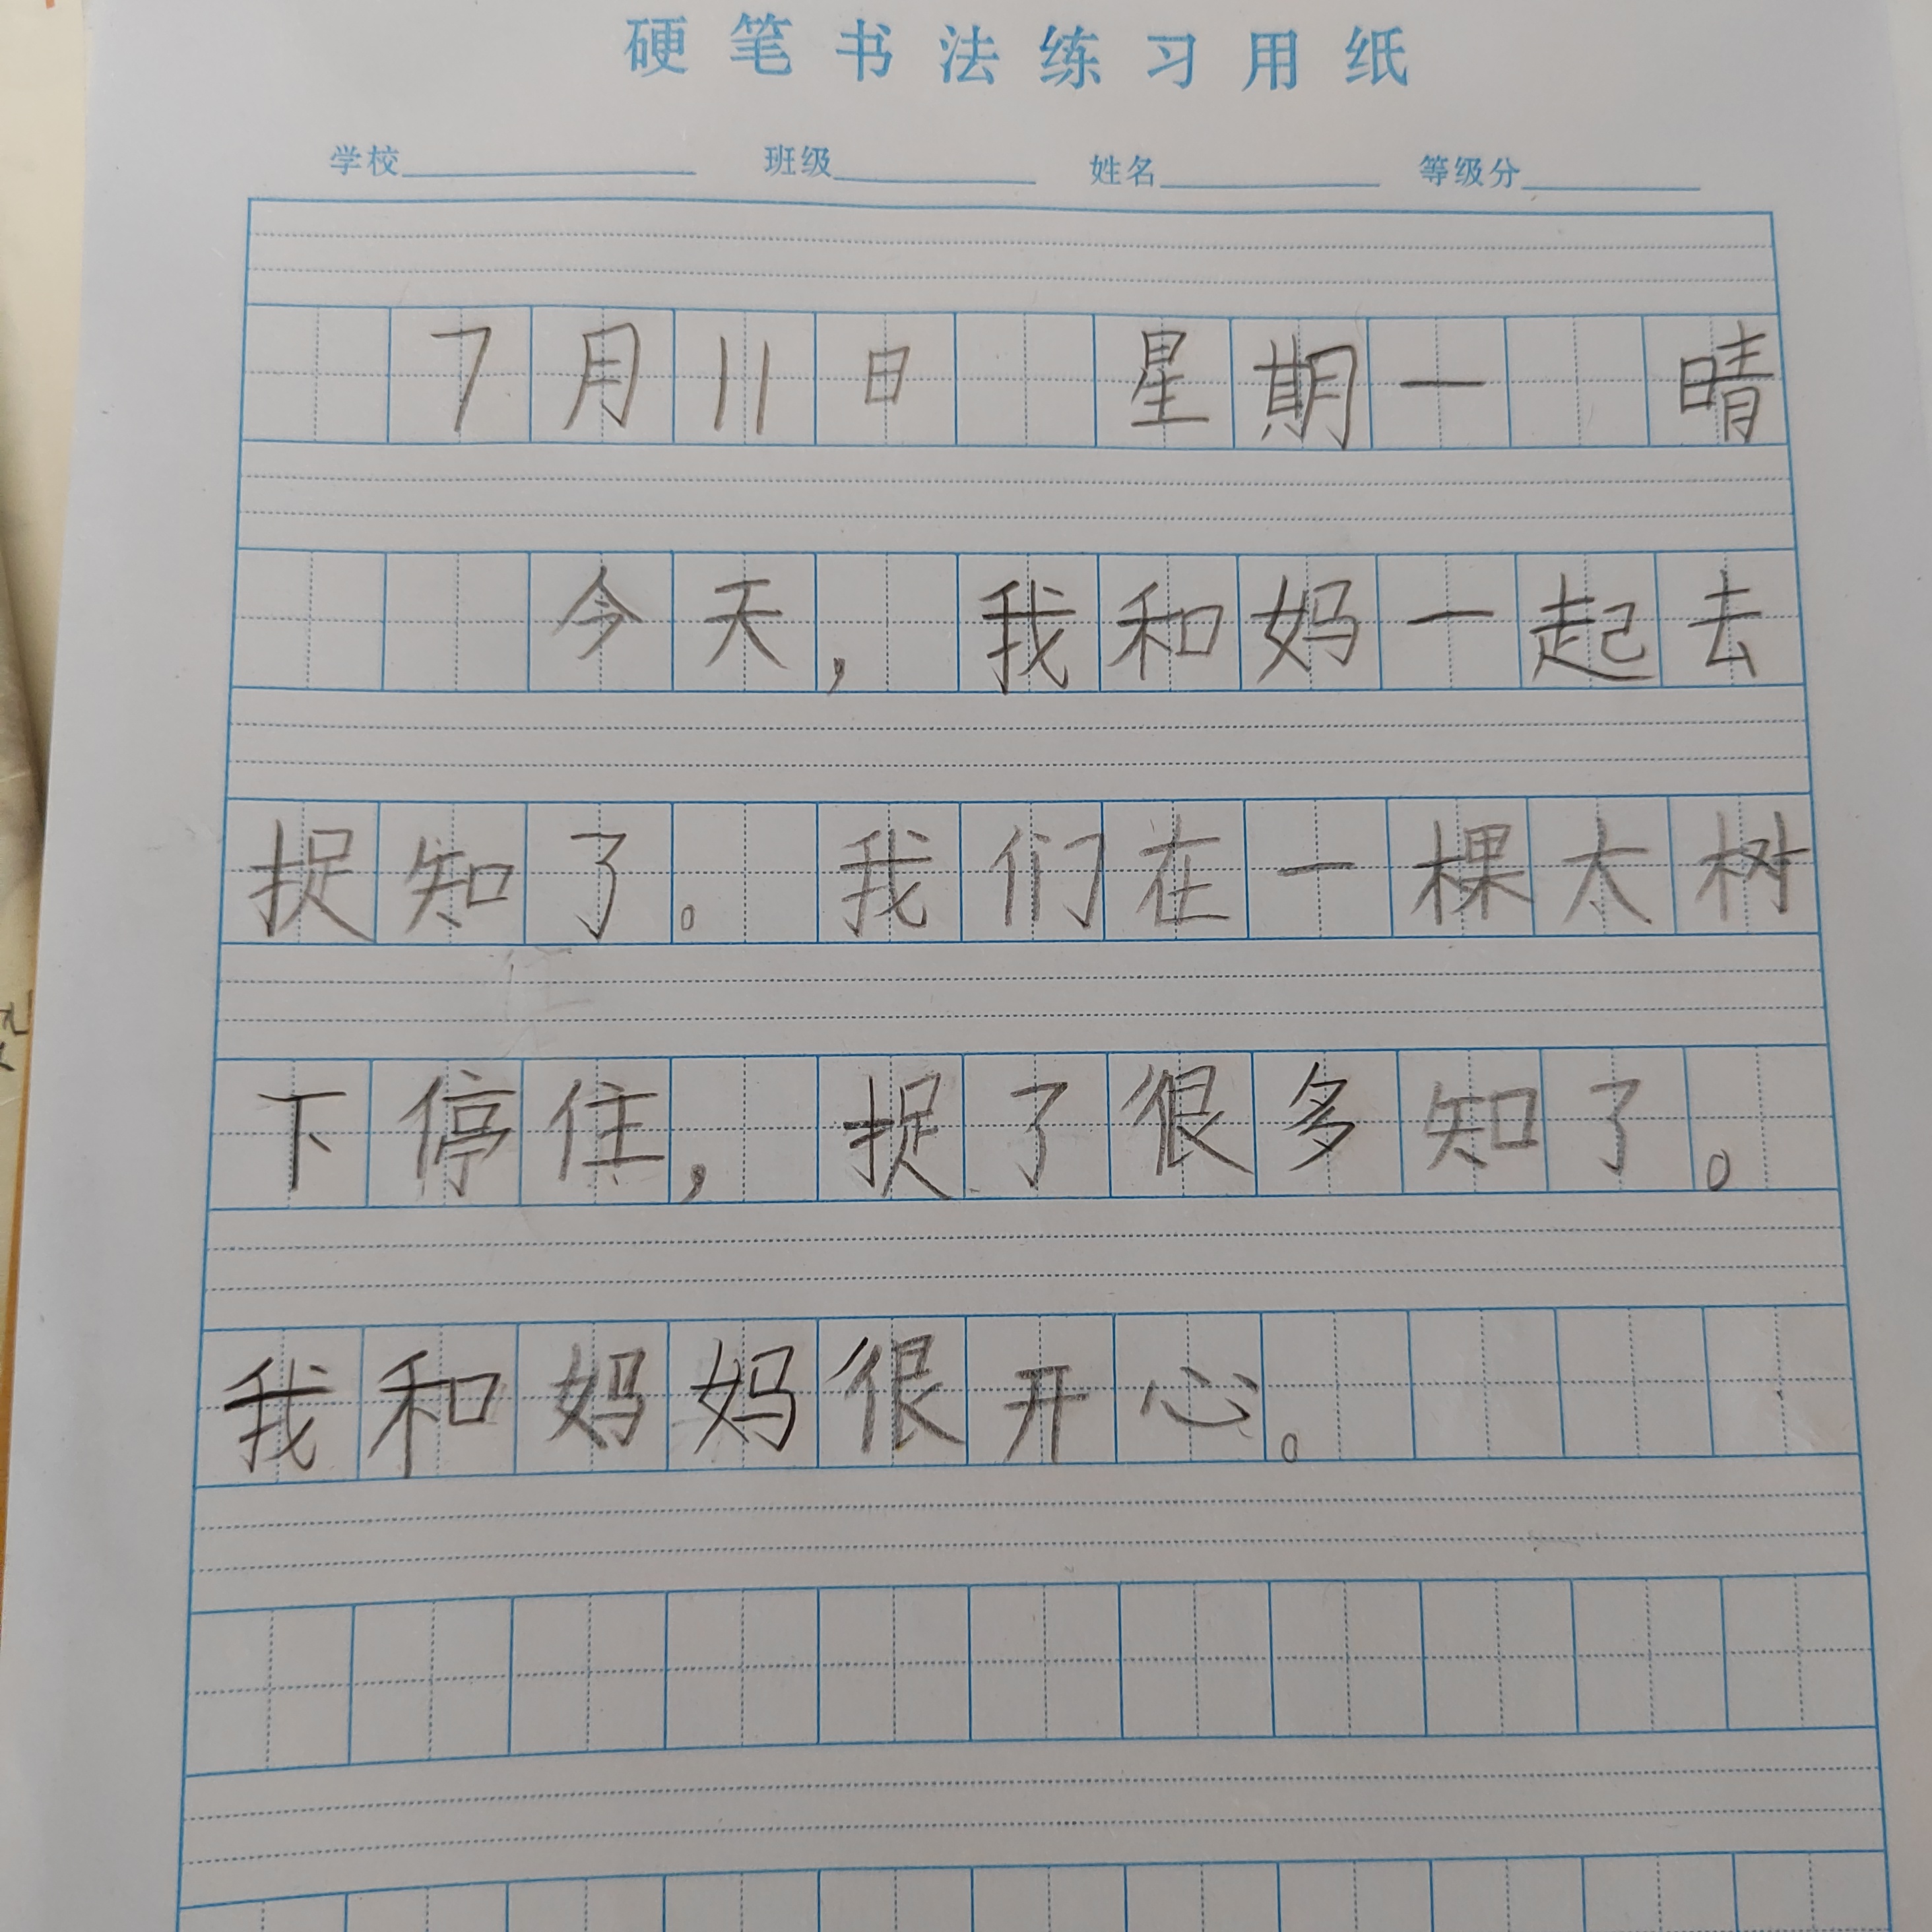 硬笔书法练习用纸
学校 班级 姓名 等级分
7月11日 星期一 晴
今天，我和妈一起去
捉知了。我们在一棵大树
下停住，捉了很多知了。
我和妈妈很开心。